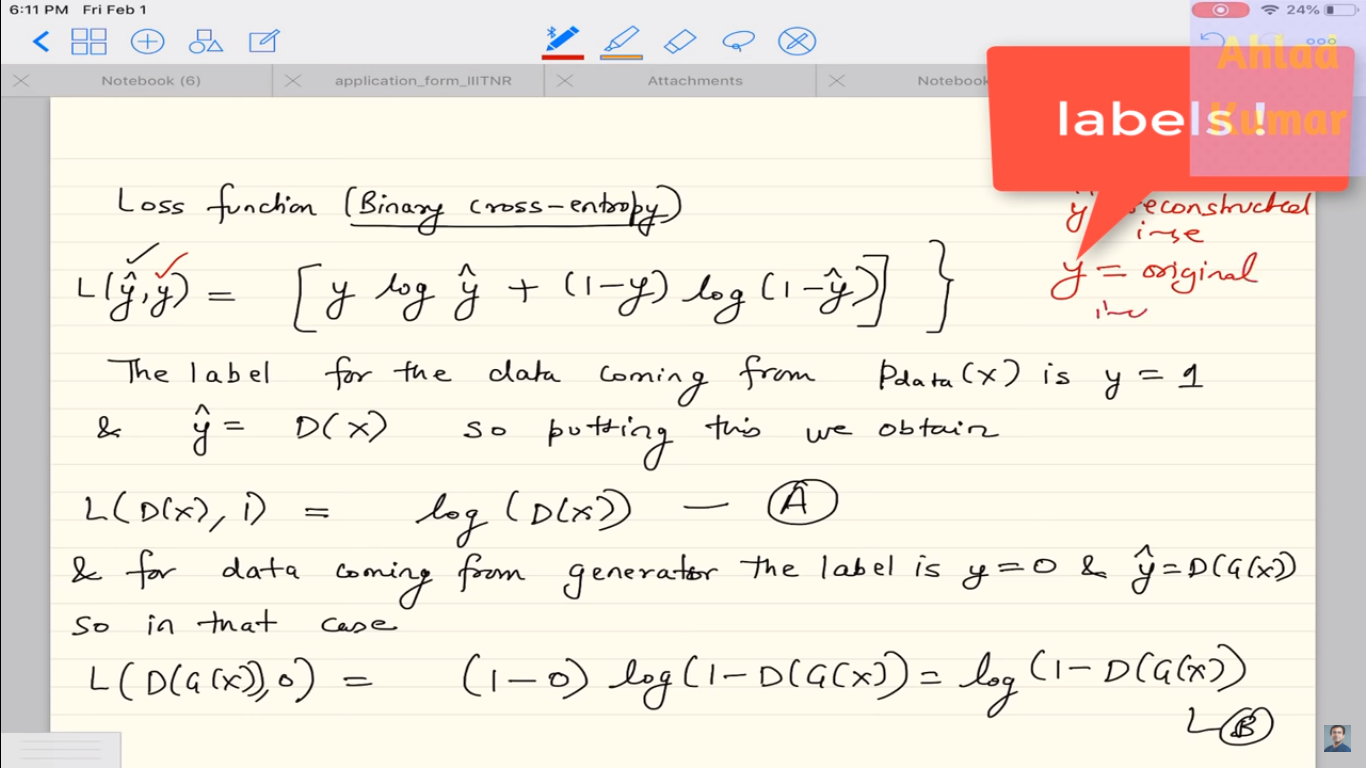 6:11 PM Fri Feb 1
24%
Notebook (6)
application_form_IIITNR
Attachments
Notebook
Ahlad
Kumar
labels !
Loss function (Binary cross-entropy)
ŷ reconstructed
y = original
L(ŷ, y) = [y log ŷ + (1-y) log (1-ŷ)] }
The label for the data coming from Pdata(x) is y = 1
& ŷ = D(x) so putting this we obtain
L(D(x), 1) = log (D(x)) — A
& for data coming from generator the label is y=0 & ŷ=D(G(x))
so in that case
L(D(G(x)),0) = (1-0) log(1-D(G(x)) = log (1-D(G(x))
B